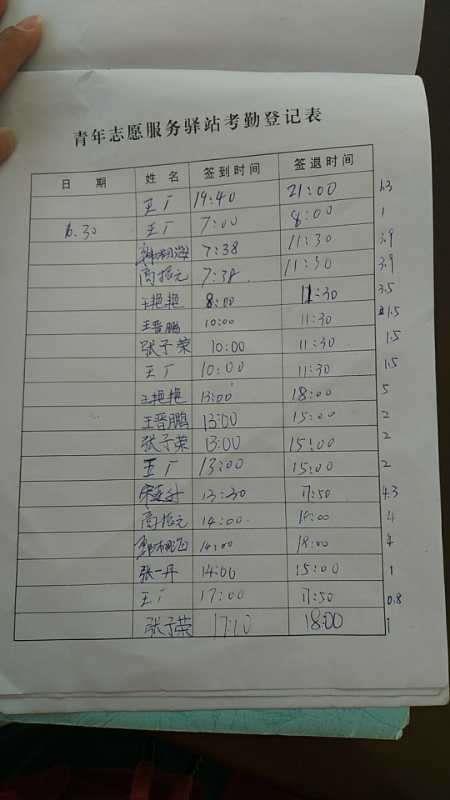 青年志愿服务驿站考勤登记表
日 期 姓 名 签到时间 签退时间
王广 19:40 21:00 1.3
6.30 王广 7:00 8:00 1
7:38 11:30 3.9
高振元 7:38 11:30 3.9
王艳艳 8:00 11:30 3.5
王晋鹏 10:00 11:30 1.5
张子荣 10:00 11:30 1.5
王广 10:00 11:30 1.5
王艳艳 13:00 18:00 5
王晋鹏 13:00 15:00 2
张子荣 13:00 15:00 2
王广 13:00 15:00 2
13:30 17:50 4.3
高振元 14:00 18:00 4
14:00 18:00 4
张一丹 14:00 15:00 1
王广 17:00 17:50 0.8
张子荣 17:10 18:00 1